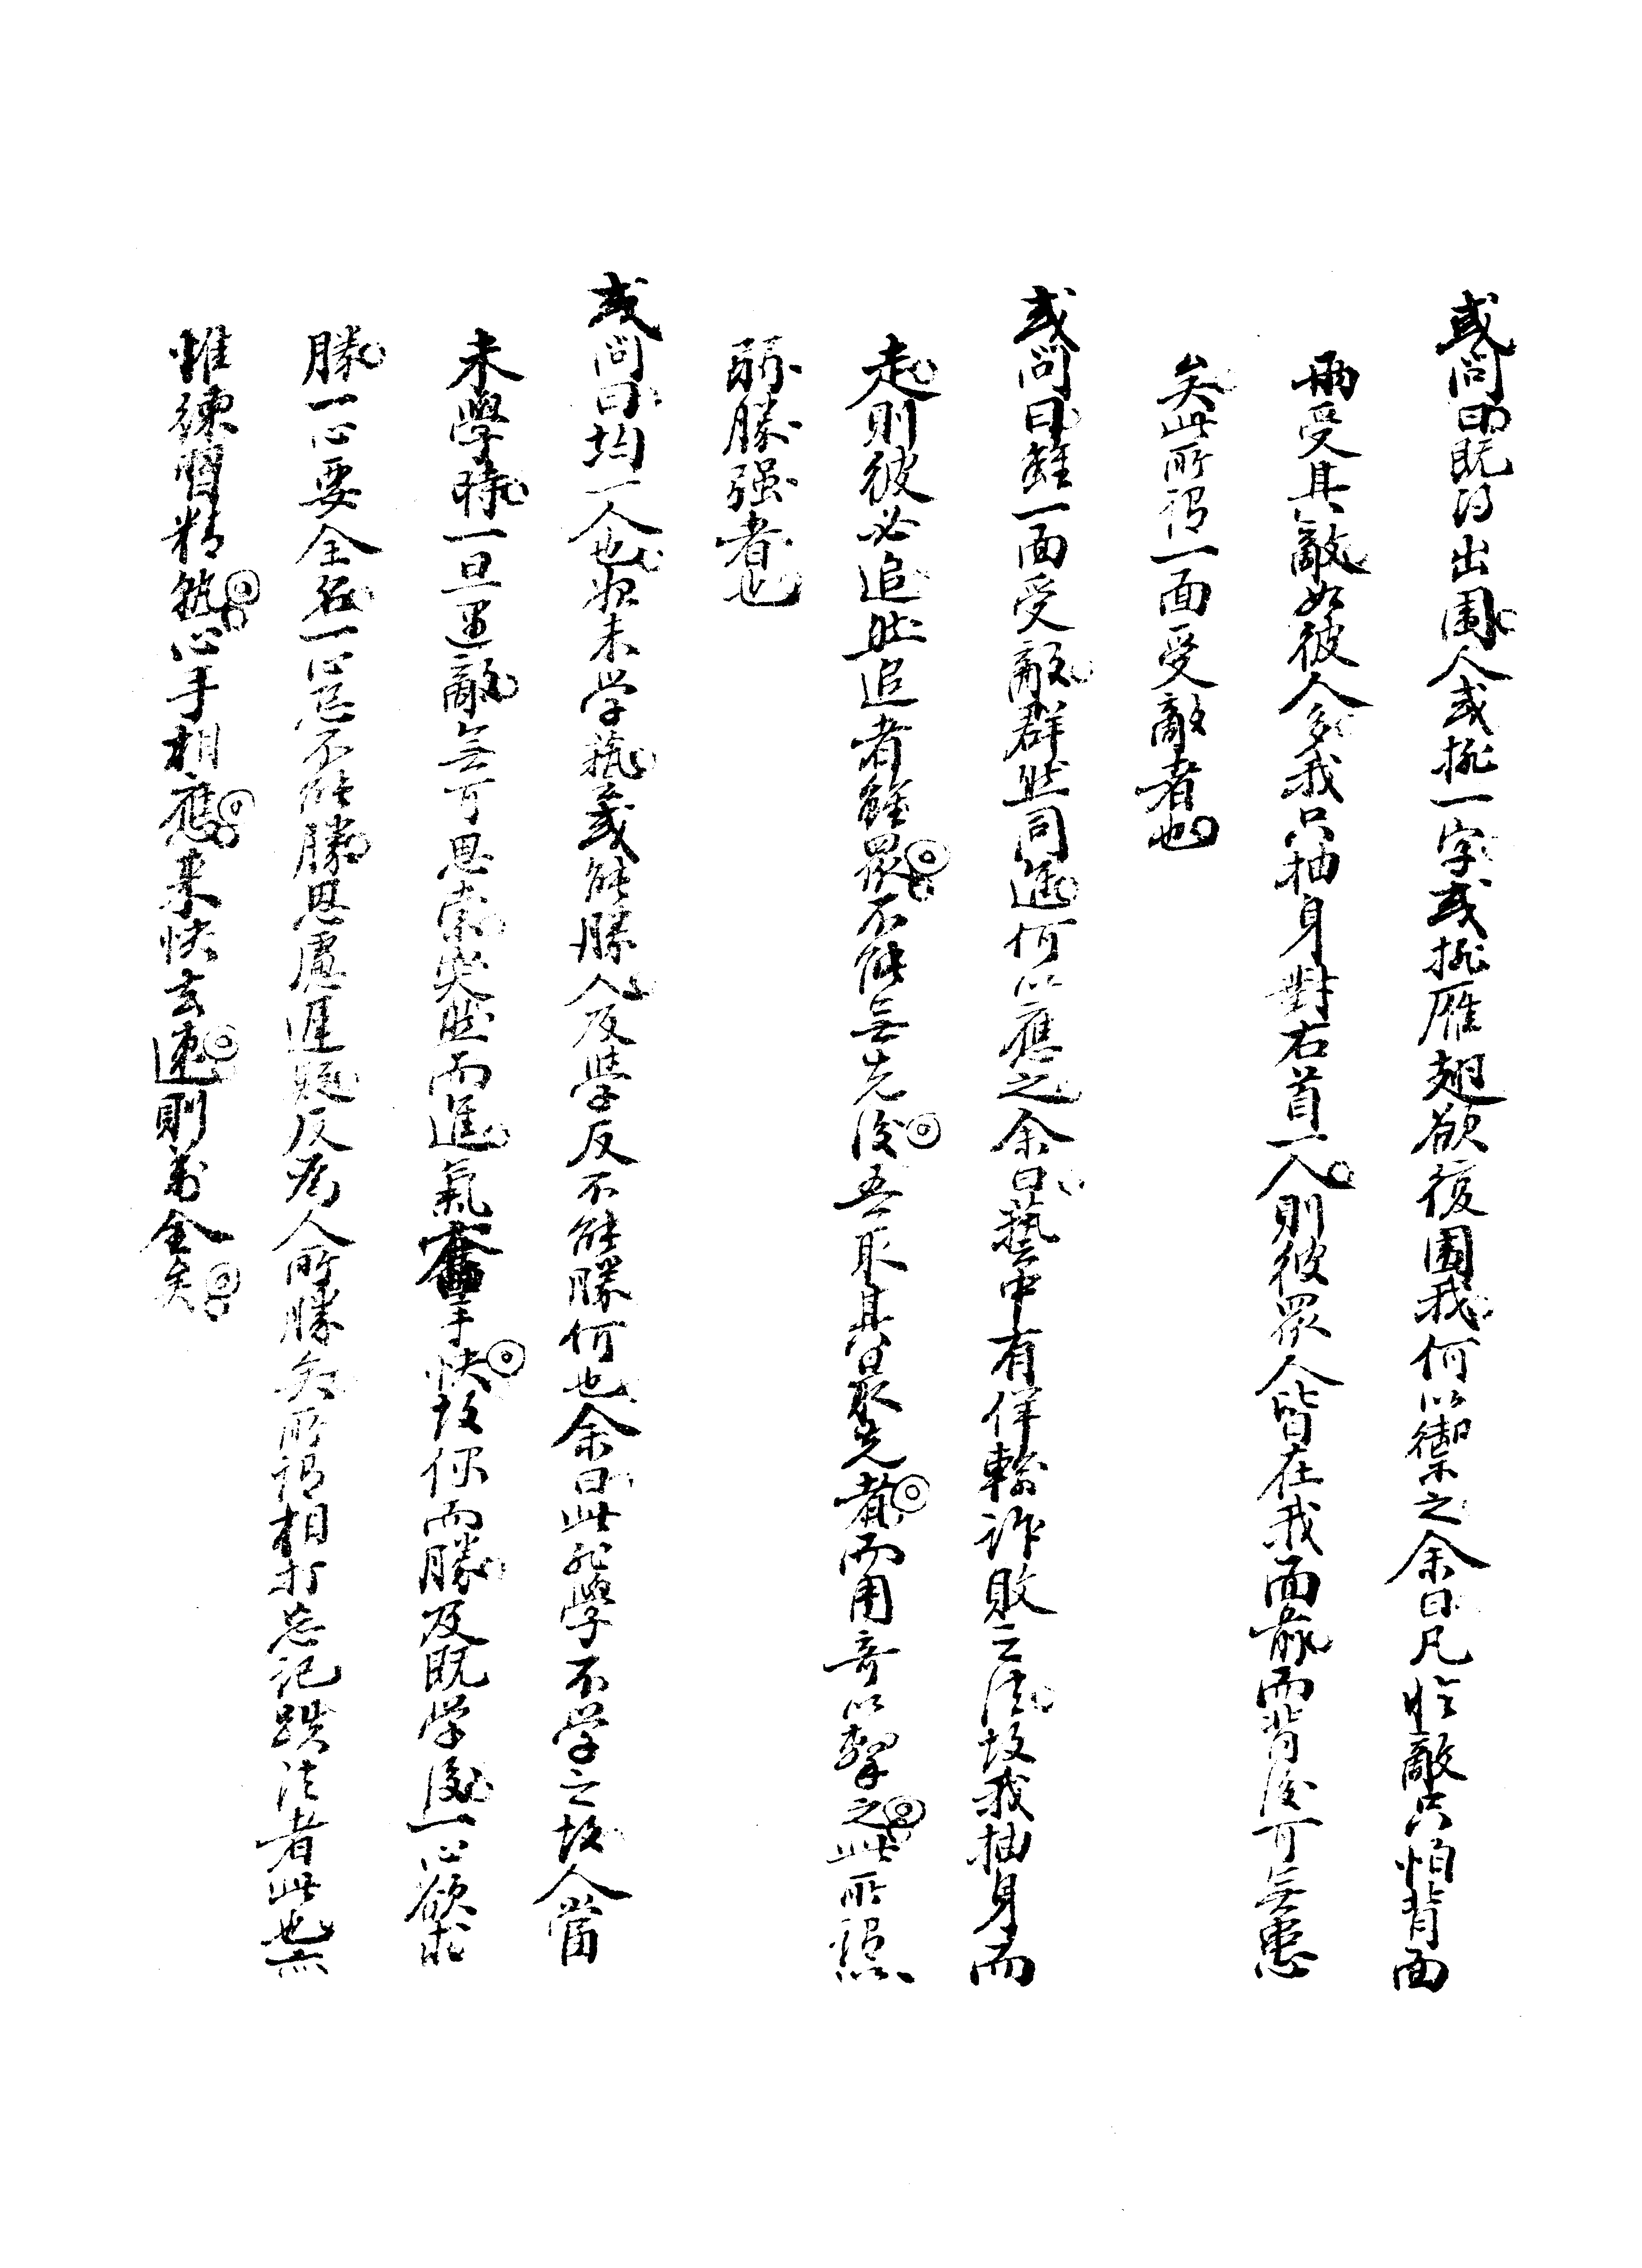 或問曰既得出圍人或排一字或排雁翅欲復圍我何以禦之余曰凡臨敵只怕背面
兩受其敵如彼人多我只抽身對右首一人則彼眾人皆在我面前而背後可無患
矣此所謂一面受敵者也
或問曰雖一面受敵群然同進何以應之余曰藝中有佯輸詐敗之法故我抽身而
走則彼必追然追者雖眾不能無先後吾取其最先者而用奇以擊之此所謂以
弱勝强者也
或問曰均一人也於未学藝或能勝人及學反不能勝何也余曰此非學不学之故人當
未學時一旦遇敵無可思索突然而進氣奮手快故你而勝及既学後一心欲求
勝一心要全名一心恐不能勝思慮遲疑反為人所勝矣所謂相打忘記跌法者此也然
惟練習精熟心手相應来快去速則萬全矣